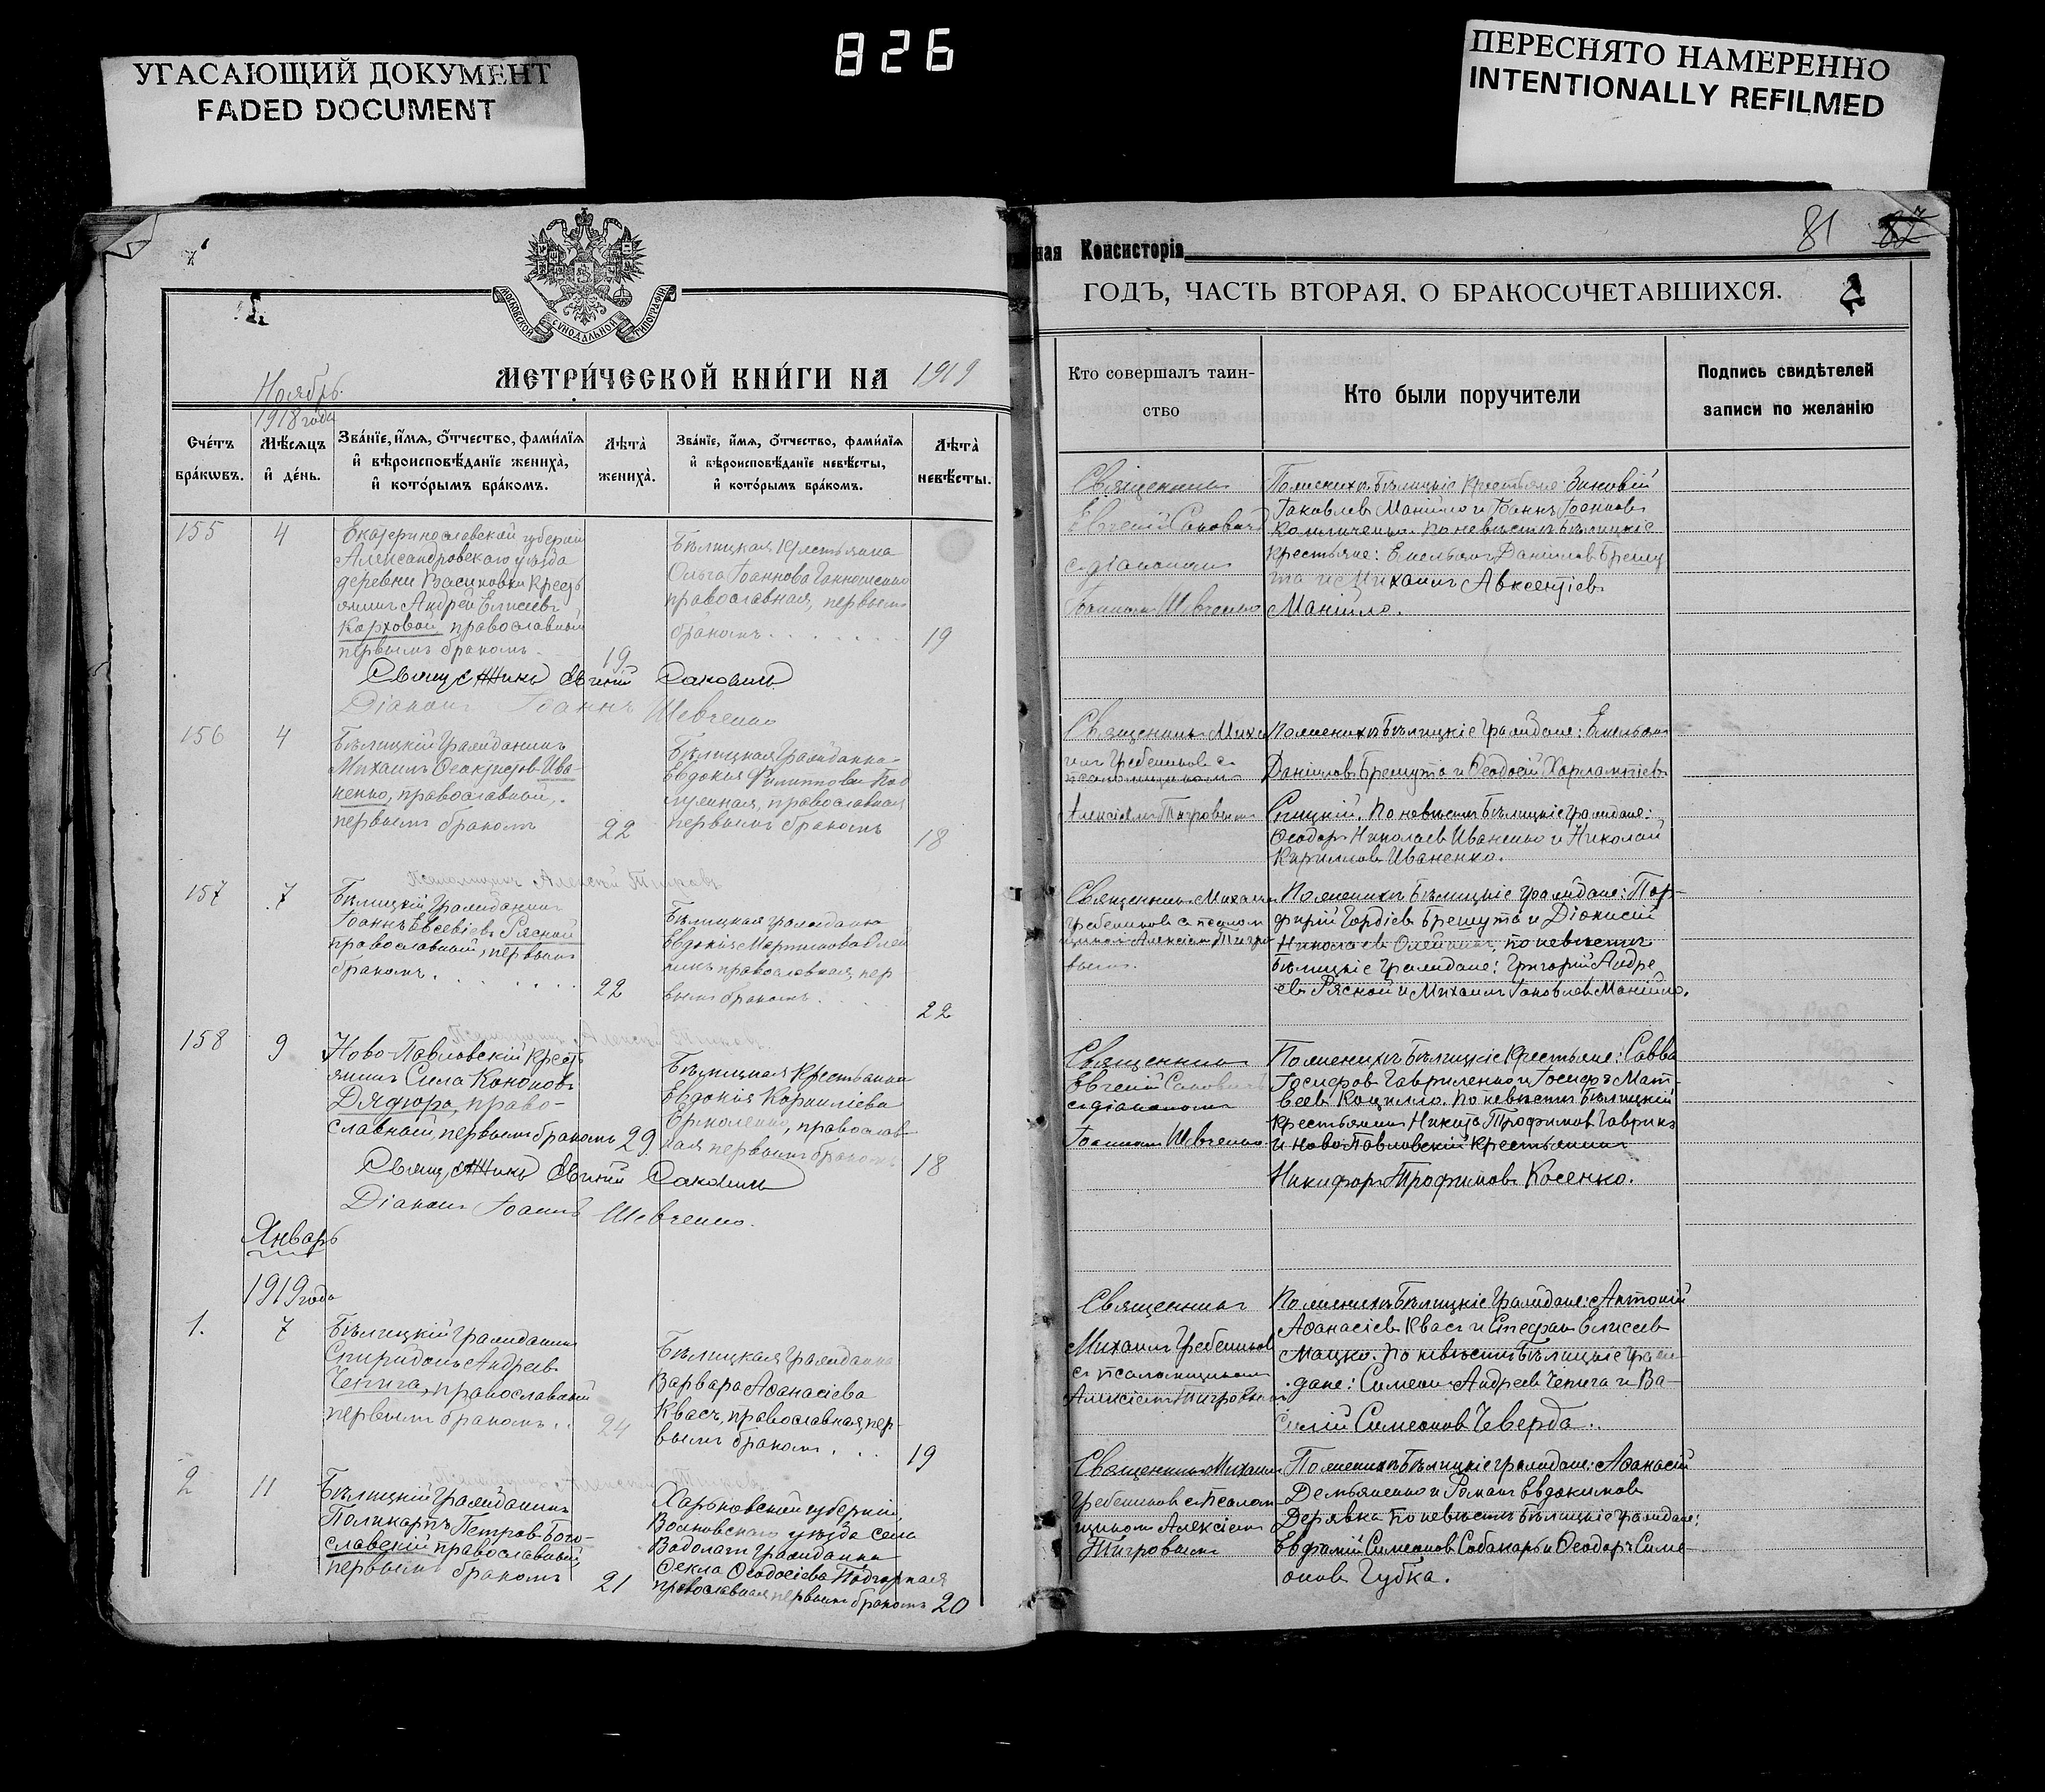 826
УГАСАЮЩИЙ ДОКУМЕНТ
FADED DOCUMENT
ПЕРЕСНЯТО НАМЕРЕННО
INTENTIONALLY REFILMED
МОСКОВСКОЙ СУНОДАЛЬНОЙ ТИПОГРАФІИ
МЕТРИ́ЧЕСКОЙ КНИ́ГИ НА 1919
Ноябрь
1918 года
Сче́тъ бра́кѡвъ.
Мѣ́сяцъ и҆ де́нь.
Зва́нїе, и҆́мя, ѻ҆́тчество, фами́лїя
и҆ вѣроисповѣ́данїе жениха̀,
и҆ кото́рымъ бра́комъ.
Лѣта̀ жениха̀.
Зва́нїе, и҆́мя, ѻ҆́тчество, фами́лїя
и҆ вѣроисповѣ́данїе невѣ́сты,
и҆ кото́рымъ бра́комъ.
Лѣта̀ невѣ́сты.
155
4
Екатеринославской губерніи
Александровскаго уѣзда
деревни Васиновки Кресть
янинъ Андрей Елисеевъ
Карховой, православный
первымъ бракомъ.
19
Бѣлицкая Крестьянка
Ольга Іоаннова
православная, первымъ
бракомъ
19
Священникъ Евгеній Саковичъ
Діаконъ Іоаннъ Шевченко
156
4
Бѣлицкій Гражданинъ
Михаилъ Ива-
ненко, православный,
первымъ бракомъ
22
Бѣлицкая Гражданка
Евдокія Филиппова Под
православная
первымъ бракомъ
18
Псаломщикъ Алексій Тигровъ
157
7
Бѣлицкій Гражданинъ
Іоаннъ Евсевіевъ Рясной
православный, первымъ
бракомъ.
22
Бѣлицкая гражданка
Евдокія Мартинова Олей
никъ православная, пер
вымъ бракомъ
22
Псаломщикъ Алексій Тигровъ
158
9
Ново-Павловскій Крест
янинъ Сила Кононовъ
Дядюра, право-
славный, первымъ бракомъ
29
Бѣлицкая Крестьянка
Евдокія Корниліева
Ермоленко, православ-
ная первымъ бракомъ
18
Священникъ Евгеній Саковичъ
Діаконъ Іоаннъ Шевченко.
Январь
1919 года
1.
7
Бѣлицкій Гражданинъ
Спиридонъ Андреевъ
Чепига, православный
первымъ бракомъ..
24
Бѣлицкая Гражданка
Варвара Аѳанасіева
Квасъ, православная, пер-
вымъ бракомъ. . .
19
Псаломщикъ Алексій Тигровъ
2
11
Бѣлицкій Гражданинъ
Поликарпъ Петровъ Бого-
славскій православный
первымъ бракомъ
21
Харьковской губерніи
Волковскаго уѣзда села
Водолаги Гражданка
Ѳекла Ѳеодосіева Подгорная
православная первымъ бракомъ
20
ная Консисторія
81
ГОДЪ, ЧАСТЬ ВТОРАЯ, О БРАКОСОЧЕТАВШИХСЯ.
2
Кто совершалъ таин-
ство
Кто были поручители
Подпись свидѣтелей
записи по желанію
Священникъ
Евгеній Саковичъ
съ діакономъ
Іоанномъ Шевченко
По женихѣ Бѣлицкіе Крестьяне: Зиновій
Іаковлевъ Манійло и Іоаннъ Іоанновъ
Калиниченко по невѣстѣ Бѣлицкіе
Крестьяне: Емельянъ Даніиловъ Брешу
та и Михаилъ Авксентіевъ
Манійло.
Священникъ Миха
илъ Гребенниковъ съ
псаломщикомъ
Алексіемъ Тигровымъ
По женихѣ Бѣлицкіе Граждане: Емельянъ
Даніиловъ Брешута и Ѳеодосій Харлампіевъ
Спицкій. По невѣстѣ Бѣлицкіе Граждане:
Ѳеодоръ Николаевъ Иваненко и Николай
Кирилловъ Иваненко.
Священникъ Михаилъ
Гребенниковъ съ псалом
щикомъ Алексіемъ Тигро
вымъ.
По женихѣ Бѣлицкіе Граждане: Пор-
фирій Гордіевъ Брешута и Діонисій
Николаевъ Олейникъ, по невѣстѣ
Бѣлицкіе Граждане: Григорій Андре
евъ Рясной и Михаилъ Іаковлевъ Манійло.
Священникъ
Евгеній Саковичъ
съ діакономъ
Іоанномъ Шевченко
По женихѣ Бѣлицкіе Крестьяне: Савва
Іосифовъ Гавриленко и Іосифъ Мат-
веевъ Кацилло. По невѣстѣ Бѣлицкій
Крестьянинъ Никита Трофимовъ Гаврикъ
и Ново-Павловскій Крестьянинъ
Никифоръ Трофимовъ Косенко.
Священникъ
Михаилъ Гребенниковъ
съ псаломщикомъ
Алексіемъ Тигровымъ
По женихѣ Бѣлицкіе Граждане: Антоній
Аѳанасіевъ Квасъ и Стефанъ Елисеевъ
Мацко. По невѣстѣ Бѣлицкіе Граж-
дане: Симеонъ Андреевъ Чепига и Ва-
силій Симеоновъ Чеверда..
Священникъ Михаилъ
Гребенниковъ съ Псалом
щикомъ Алексіемъ
Тигровымъ
По женихѣ Бѣлицкіе граждане: Аѳанасій
Демьяненко и Романъ Евдокимовъ
Дерявка по невѣстѣ Бѣлицкіе граждане:
Евфимій Симеоновъ Собакарь и Ѳеодоръ Симе-
оновъ Губка.